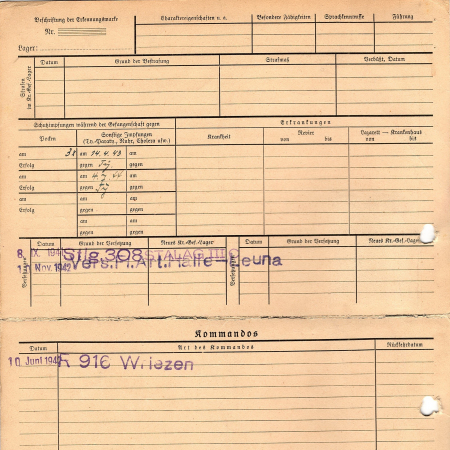 Beschriftung der Erkennungsmarke
Nr.
Lager:
Charaktereigenschaften u. a.
Besondere Fähigkeiten
Sprachkenntnisse
Führung
Strafen im Kr.-Gef.-Lager
Datum
Grund der Bestrafung
Strafmaß
Verbüßt, Datum
Schutzimpfungen während der Gefangenschaft gegen
Pocken
Sonstige Impfungen
(Ty.-Paraty., Ruhr, Cholera usw.)
Erkrankungen
Krankheit
Revier
von bis
Lazarett — Krankenhaus
von bis
am am 14.4.43 am
Erfolg gegen gegen
am am am
Erfolg gegen gegen
am am am
Erfolg gegen gegen
am am am
gegen gegen
Datum
Grund der Versetzung
Neues Kr.-Gef.-Lager
Datum
Grund der Versetzung
Neues Kr.-Gef.-Lager
Stlg. 308
STALAG III
Nov. 1942
Halle-Leuna
Kommandos
Datum
Art des Kommandos
Rückkehrdatum
10. Juni
R 916 Wriezen